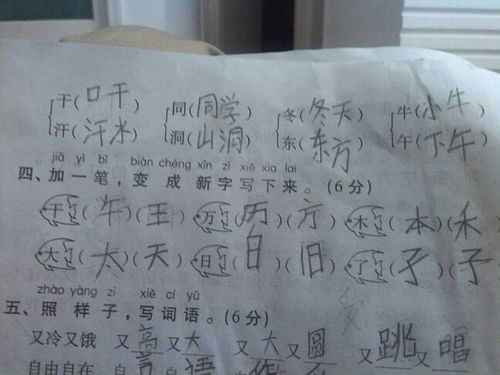 干(口干) 同(同学) 冬(冬天) 牛(小牛)
汗(汗水) 洞(山洞) 东(东方) 午(下午)
jiā yì bǐ biàn chéng xīn zì xiě xia lai
四、加一笔，变成新字写下来。(6分)
干(午)(王) 万(历)(方) 木(本)(禾)
大(太)(天) 日(白)(旧) 了(子)(子)
zhào yàng zi xiě cí yǔ
五、照样子，写词语。(6分)
又冷又饿 又高又大 又大又圆 又跳又唱
自由自在 自言自语